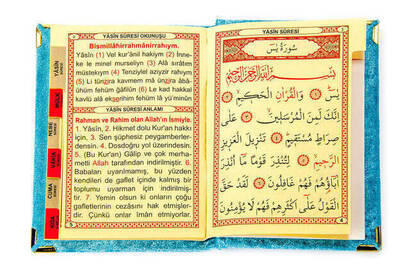 YÂSÎN SÛRESİ OKUNUŞU
Bismillâhirrahmânirrahıym.
Yâsîn (1) Vel kur'ânil hakiym (2) İnne-
ke le minel murseliyn (3) Alâ sırâtım
müstekıym (4) Tenziylel aziyzir rahıym
(5) Li tünzira kavmem mâ ünzira âbâ-
ühüm fehüm ğâfilûn (6) Le kad hakkal
kavlü alâ ekserihim fehüm lâ yü'minûn
YÂSÎN SÛRESİ ANLAMI
Rahman ve Rahim olan Allah'ın İsmiyle.
1. Yâsîn, 2. Hikmet dolu Kur'an hakkı
için, 3. Sen şüphesiz peygamberler-
densin. 4. Dosdoğru yol üzerindesin.
5. (Bu Kur'an) Gâlip ve çok merha-
metli Allah tarafından indirilmiştir. 6.
Babaları uyarılmamış, bu yüzden
kendileri de gaflet içinde kalmış bir
toplumu uyarman için indirilmiş-
tir. 7. Yemin olsun ki onların çoğu
gafletlerinin cezasını hak etmişler-
dir. Çünkü onlar îman etmiyorlar.
YÂSÎN
MÜLK
NEBE
CUMA
KISA
YÂSÎN SÛRESİ
سُورَةُ يٰسٓ
بِسْمِ اللّٰهِ الرَّحْمٰنِ الرَّحِيمِ
يٰسٓ ۝ وَالْقُرْاٰنِ الْحَكِيمِ ۝
اِنَّكَ لَمِنَ الْمُرْسَلِينَ ۝ عَلٰى
صِرَاطٍ مُسْتَقِيمٍ ۝ تَنْزِيلَ الْعَزِيزِ
الرَّحِيمِ ۝ لِتُنْذِرَ قَوْمًا مَٓا اُنْذِرَ
اٰبَٓاؤُهُمْ فَهُمْ غَافِلُونَ ۝ لَقَدْ حَقَّ
الْقَوْلُ عَلٰٓى اَكْثَرِهِمْ فَهُمْ لَا يُؤْمِنُونَ